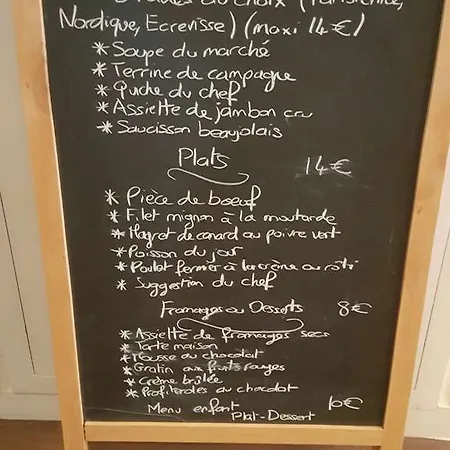 au choix (Parisienne,
Nordique, Ecrevisse) (maxi 14€)
* Soupe du marché
* Terrine de campagne
* Quche du chef
* Assiette de jambon cru
* Saucisson beaujolais
Plats 14€
* Pièce de boeuf
* Filet mignon à la moutarde
* Magret de canard au poivre vert
* Poisson du jour
* Poulet fermier à la crème ou rôti
* Suggestion du chef
Fromages ou Desserts 8€
* Assiette de fromages secs
* Tarte maison
* Mousse au chocolat
* Gratin aux fruits rouges
* Crème brûlée
* Profiteroles au chocolat
Menu enfant 10€
Plat-Dessert